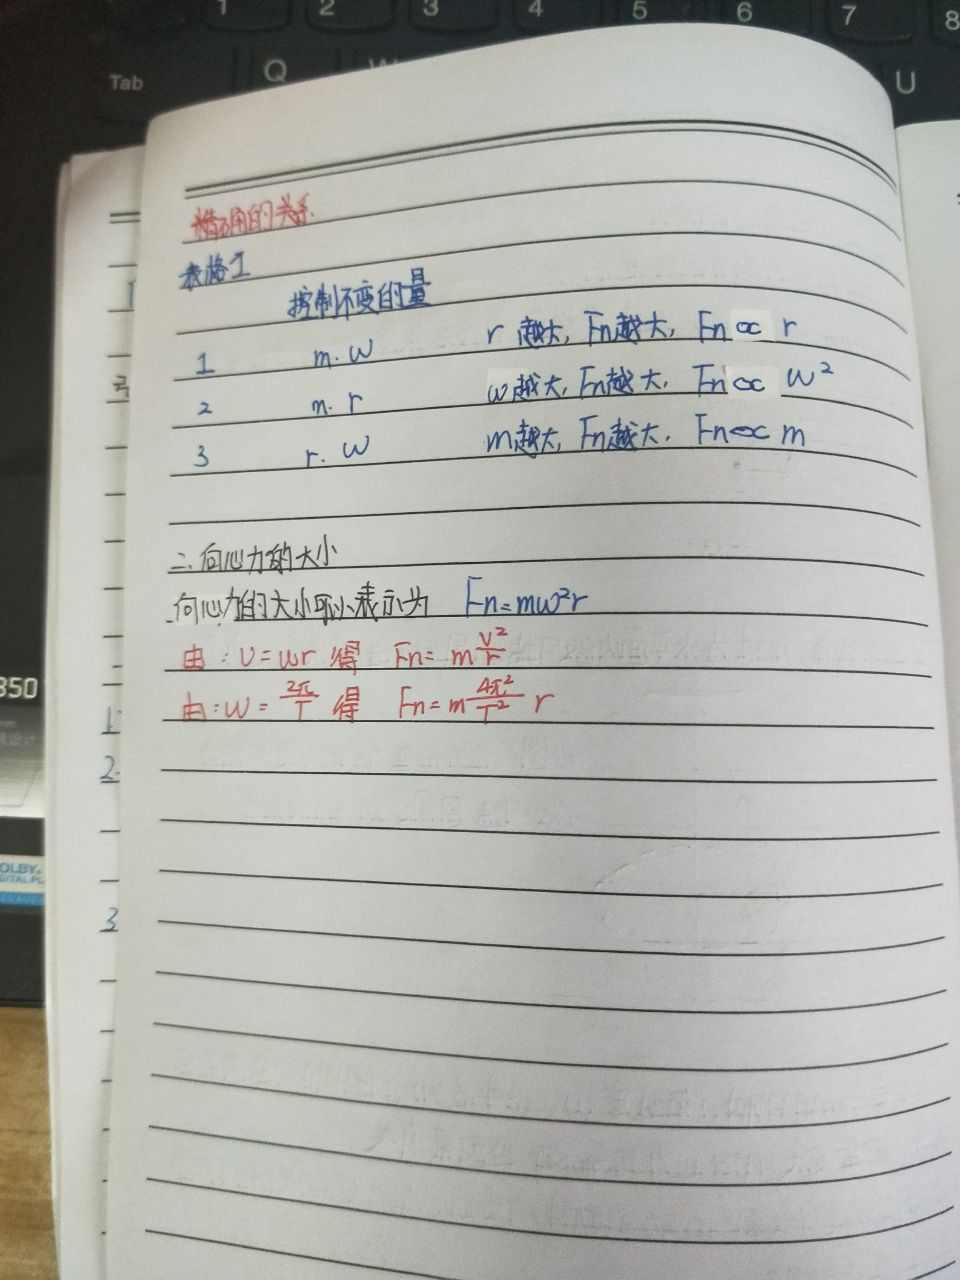 1 2 3 4 5 6 7 8
Tab Q W U
精确的关系
表格1
控制不变的量
1 m.ω r越大,Fn越大,Fn∝r
2 m.r ω越大,Fn越大,Fn∝ω²
3 r.ω m越大,Fn越大,Fn∝m
二.向心力的大小
向心力的大小可以表示为 Fn=mω²r
由:v=ωr 得 Fn=m\frac{v²}{r}
由:ω=\frac{2π}{T} 得 Fn=m\frac{4π²}{T²}r
350
1
2.
DOLBY
3